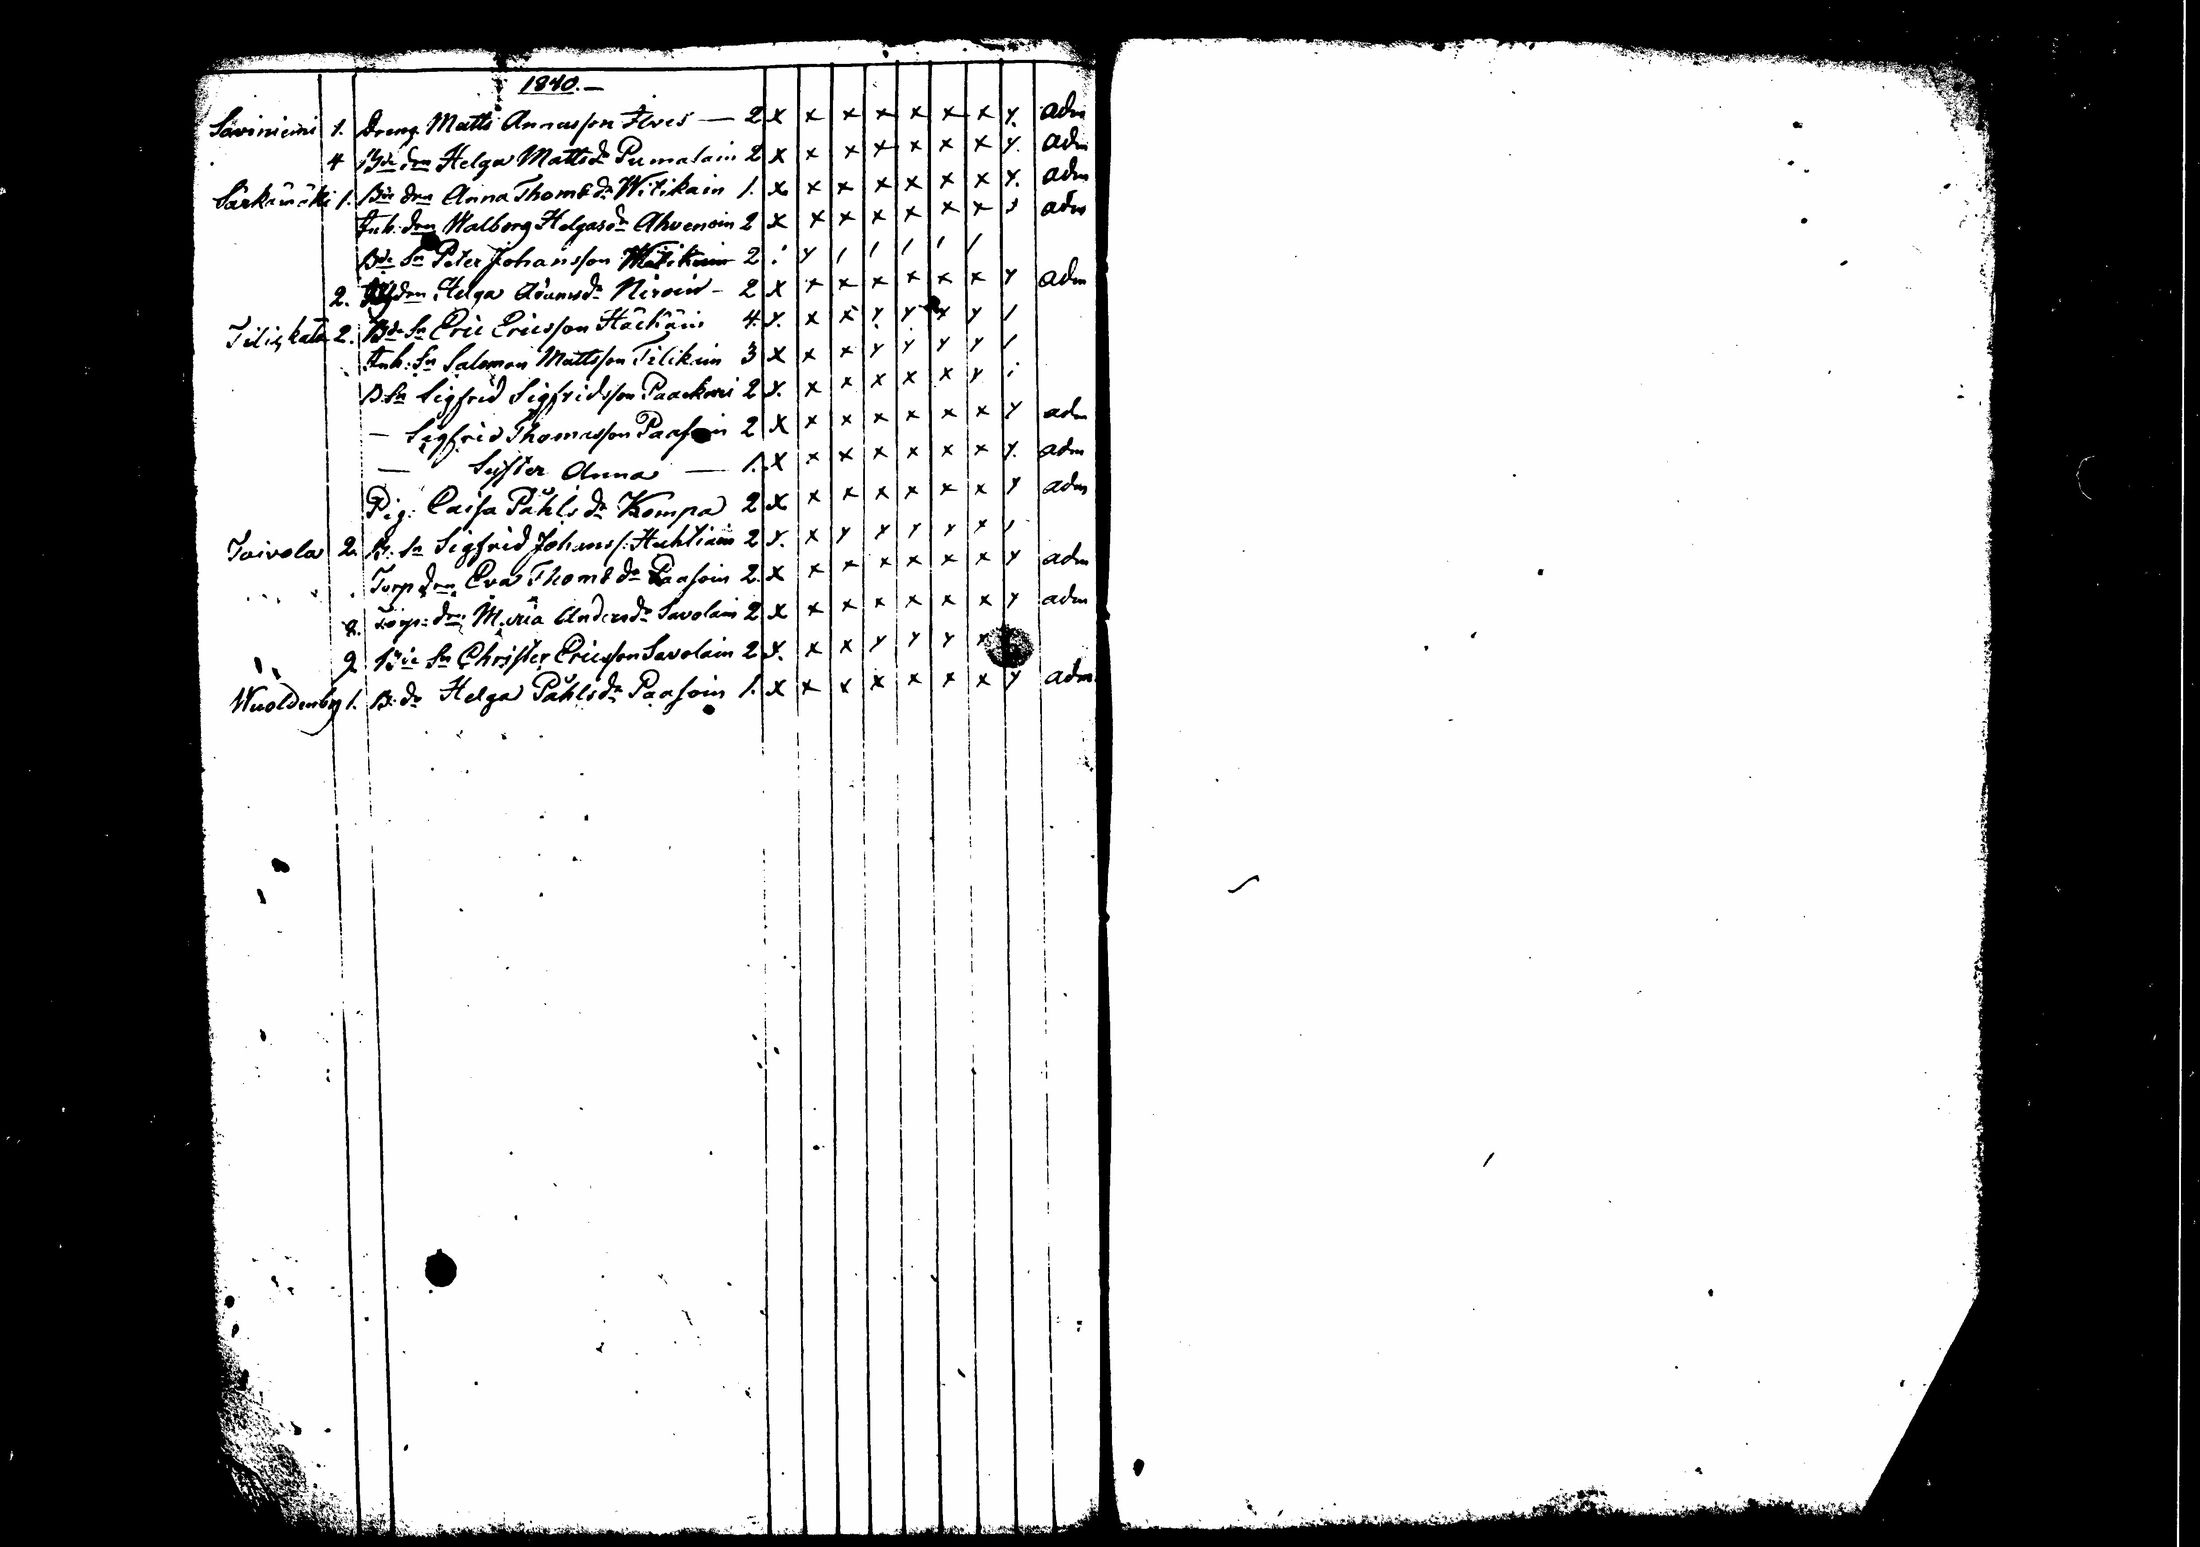 1840.—
Saviniemi 1. Dreng Matts Annasson Ilves — 2 x x x x x x x y. adm
4 Bde dra Helga Matts dr Pumalain 2 x x x x x x x y. adm
Särkämäki 1. Bde dra Anna Thoms dr Witikain 1. x x x x x x x y. adm
Inh: dra Walborg Helgas dr Ahvenain 2 x x x x x x x adm
Bde Sn Peter Johansson Witikain 2 y / / / / /
2. dra Helga Adams dr Niroin — 2 x x x x x x x y adm
2. Bde Sn Eric Ericsson Häckäin 4. y. x x y y y y /
Inh: Sn Salomon Mattsson Tilikain 3 x x x y y y y /
B. Sn Sigfrid Sigfridsson Paackari 2 y. x x x x x y
— Sigfrid Thomasson Paasoin 2 x x x x x x x y adm
— Syster Anna — 1. x x x x x x x y. adm
Pig: Caisa Påhls dr Kompa 2 x x x x x x x y adm
Toivola 2. B. Sn Sigfrid Johans/: Huhtiain 2 y. x y y y y x /
Torp dra Eva Thoms dr Paasoin 2. x x x x x x x y adm
2. Torp: dra Maria Anders dr Savolain 2 x x x x x x x y adm
2 Bde Sn Christer Ericsson Savolain 2 y. x x y y y x
Wuoldenby 1. B: dr Helga Påhls dr Paasoin 1. x x x x x x x y adm